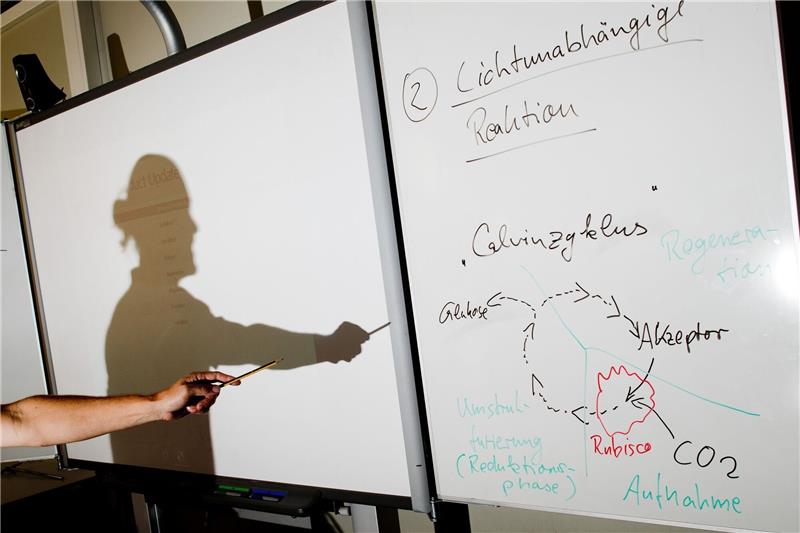 duct Update
② Lichtunabhängige
Reaktion
„Calvinzyklus"
Regenera-
tion
Glukose
Akzeptor
Umstruk-
turierung
(Reduktions-
phase)
Rubisco
CO2
Aufnahme